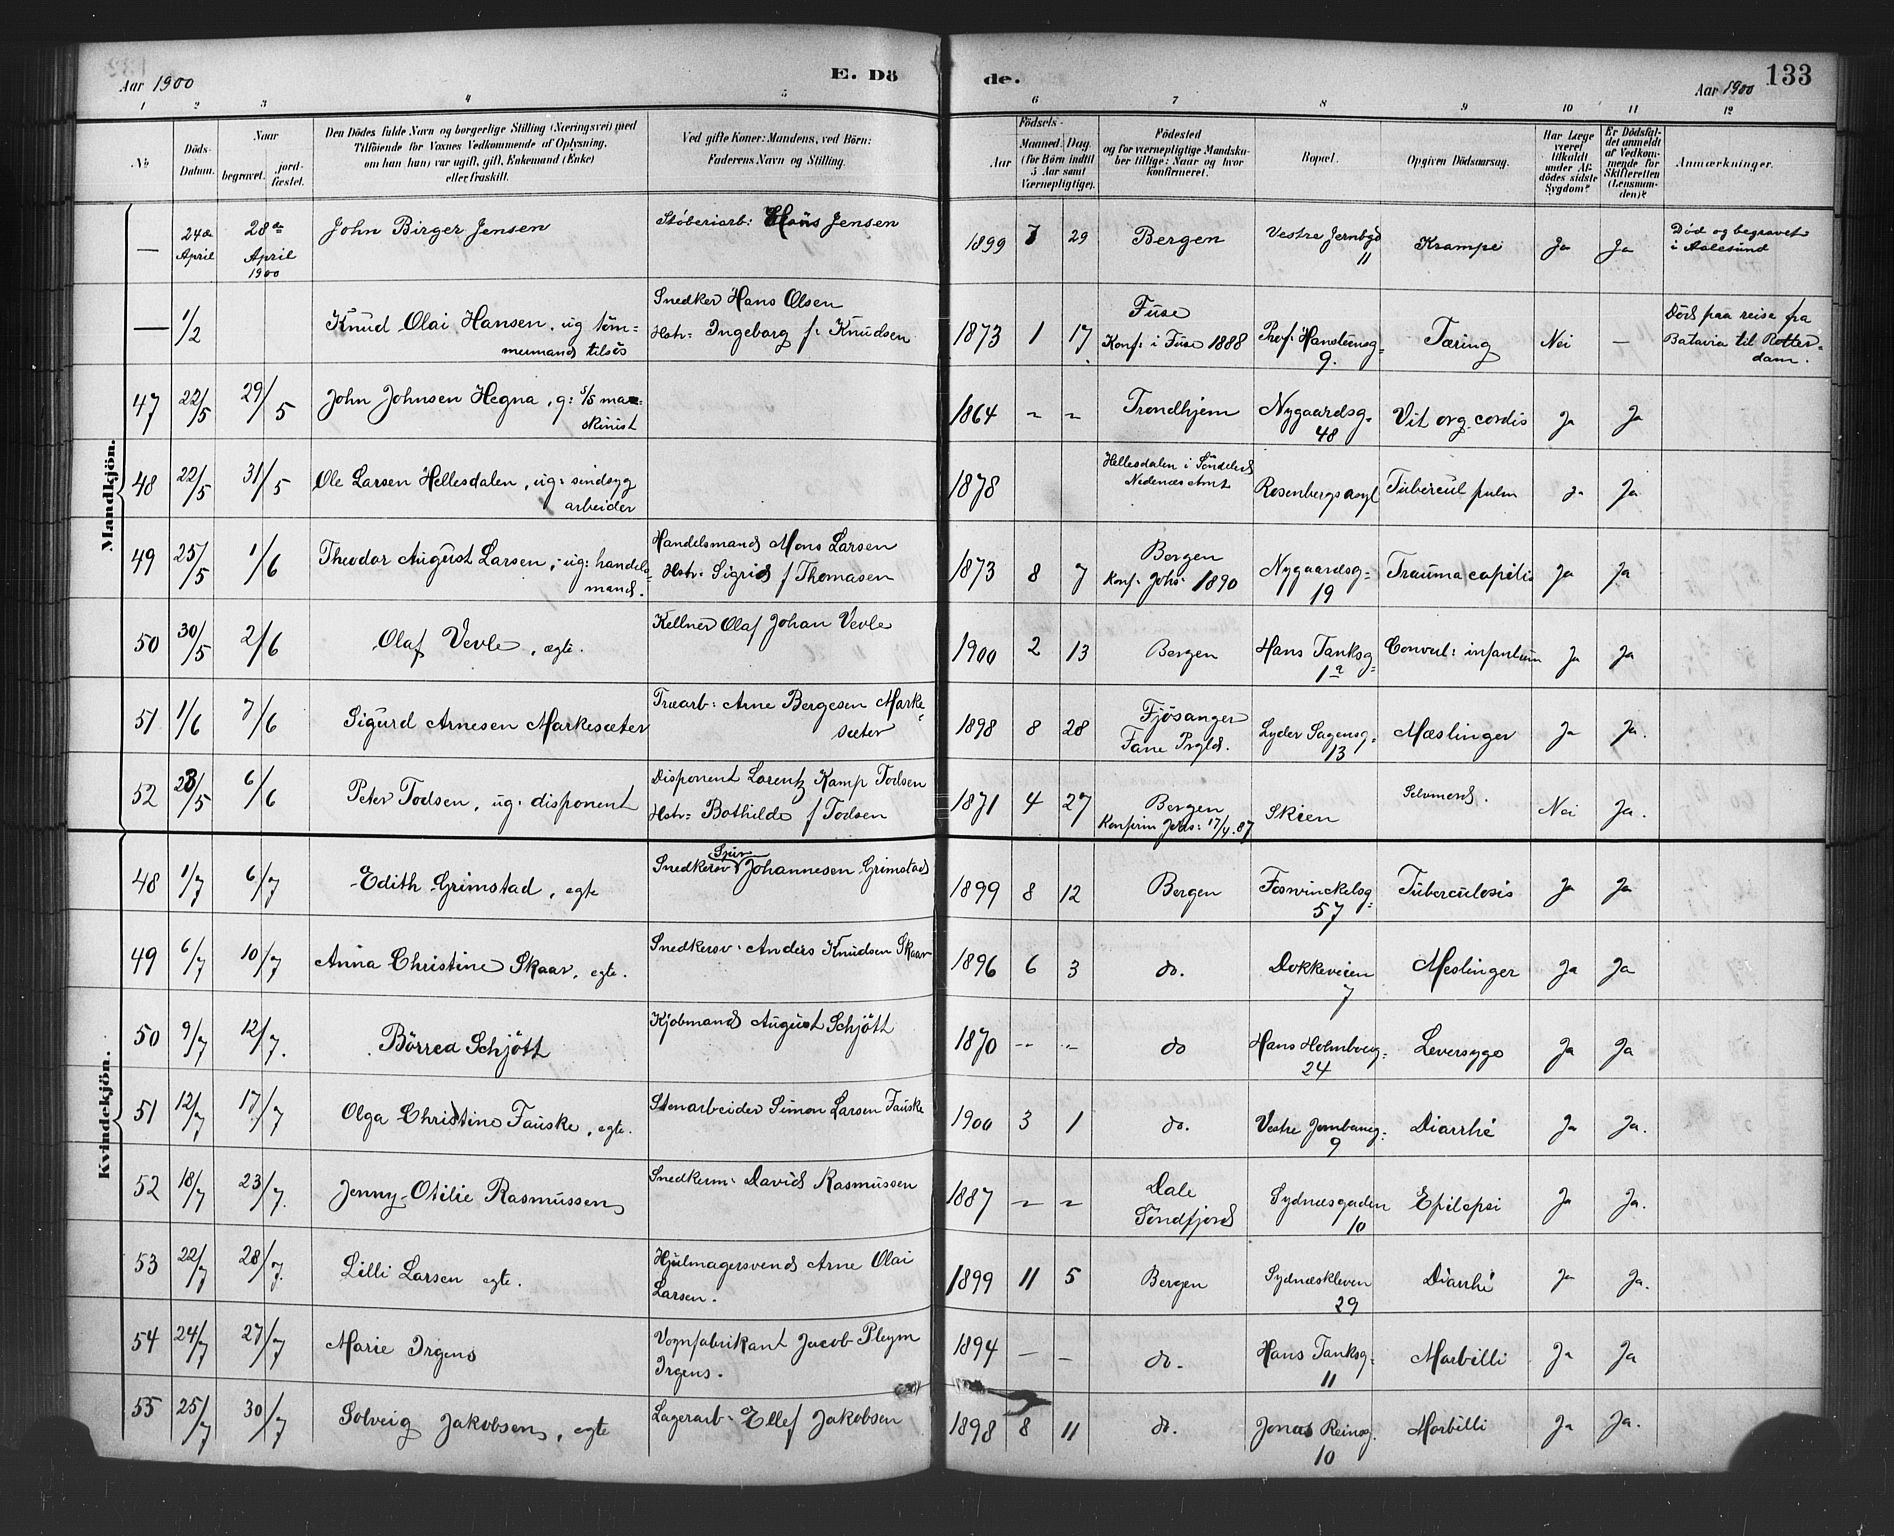 Aar 1900
E. Dö
de.
Aar 1900
133
1 2 3 4 5 6 7 8 9 10 11 12
No
Döds-
Datum.
Naar
begravet.
jord-
fæstet.
Den Dödes fulde Navn og borgerlige Stilling (Næringsvei) med
Tilföiende for Voxnes Vedkommende af Oplysning,
om han (hun) var ugift, gift, Enkemand (Enke)
eller fraskilt.
Ved gifte Koner: Mandens, ved Börn:
Faderens Navn og Stilling.
Födsels-
Aar
Maaned.
Dag.
(for Börn indtil
5 Aar samt
Værnepligtige).
Födested
og for værnepligtige Mandska-
ber tillige: Naar og hvor
konfirmeret.
Bopæl.
Opgiven Dödsaarsag.
Har Læge
været
tilkaldt
under Af-
dödes sidste
Sygdom?
Er Dödsfal-
det anmeldt
af Vedkom-
mende for
Skifteretten
(Lensman-
den)?
Anmærkninger.
Mandkjön.
— 24de April 28de April 1900 John Birger Jensen Støberiarb: Hans Jensen 1899 7 29 Bergen Vestre Jernbg 11 Krampe Ja Ja Död og begravet
i Aalesund
— 1/2 Knud Olai Hansen, ug töm=
mermand tilsös Snedker Hans Olsen
Hstr: Ingeborg f. Knudsen 1873 1 17 Fuse
Konf: i Fuse 1888 Prof Hansteensg=
9. Tæring Nei — Död paa reise fra
Batavia til Rotter=
dam.
47 22/5 29/5 John Johnsen Hegna, g: s/s ma=
skinist 1864 " " Trondhjem Nygaardsg=
48 Vit org. cordis Ja Ja
48 22/5 31/5 Ole Larsen Hellesdalen, ug: sindsyg
arbeider 1878 Hellesdalen i Söndeled
Nedenæs Amt Rosenbergs asyl Tubercul pulm Ja Ja
49 25/5 1/6 Theodor August Larsen, ug: handels=
mand. Handelsmand Mons Larsen
Hstr: Sigrid f Thomasen 1873 8 7 Bergen
Konf: Johs: 1890 Nygaardsg=
19 Trauma capitis Ja Ja
50 30/5 2/6 Olaf Vevle, ægte. Kellner Olaf Johan Vevle 1900 2 13 Bergen Hans Tanksg=
1a Convul: infantum Ja Ja
51 1/6 7/6 Sigurd Arnesen Markesæter Træarb: Arne Bergesen Marke=
sæter 1898 8 28 Fjösanger
Fane Prgld. Lyder Sagensg=
13 Mæslinger Ja Ja.
52 23/5 6/6 Peter Todsen, ug: disponent Disponent Lorentz Kamp Todsen
Hstr: Bothilde f Todsen 1871 4 27 Bergen
Konfirm Johs: 17/4.87 Skien Selvmord. Nei Ja.
Kvindekjön.
48 1/7 6/7 Edith Grimstad, egte Snedkersv Johannesen Grimstad 1899 8 12 Bergen Fosvinckelsg=
57 Tuberculosis Ja Ja
49 6/7 10/7 Anna Christine Skaar, egte. Snedkersv: Anders Knudsen Skaar 1896 6 3 do. Dokkeveien
7 Meslinger Ja Ja
50 9/7 12/7. Börrea Schjött Kjöbmand August Schjött 1870 " " do Hans Holmboeg=
24 Leversyge Ja Ja
51 12/7 17/7 Olga Christine Fauske, egte. Stenarbeider Simon Larsen Fauske 1900 3 1 do. Vestre Jernbaneg=
9 Diarrhé Ja Ja.
52 18/7 23/7. Jenny Otilie Rasmussen Snedkerm: David Rasmussen 1887 " " Dale
Söndfjord Sydnæsgaden
10 Epilepsi Ja Ja.
53 22/7 28/7. Lilli Larsen egte. Hjulmagersvend Arne Olai
Larsen. 1899 11 5 Bergen Sydnæskleven
29 Diarrhé Ja Ja.
54 24/7 27/7 Marie Irgens Vognfabrikant Jacob Pleym
Irgens. 1894 — — do. Hans Tanksg=
11 Morbilli Ja Ja
55 25/7 30/7 Solveig Jakobsen, egte Lagerarb: Ellef Jakobsen 1898 8 11 do. Jonas Reinsg.
10 Morbilli Ja Ja.